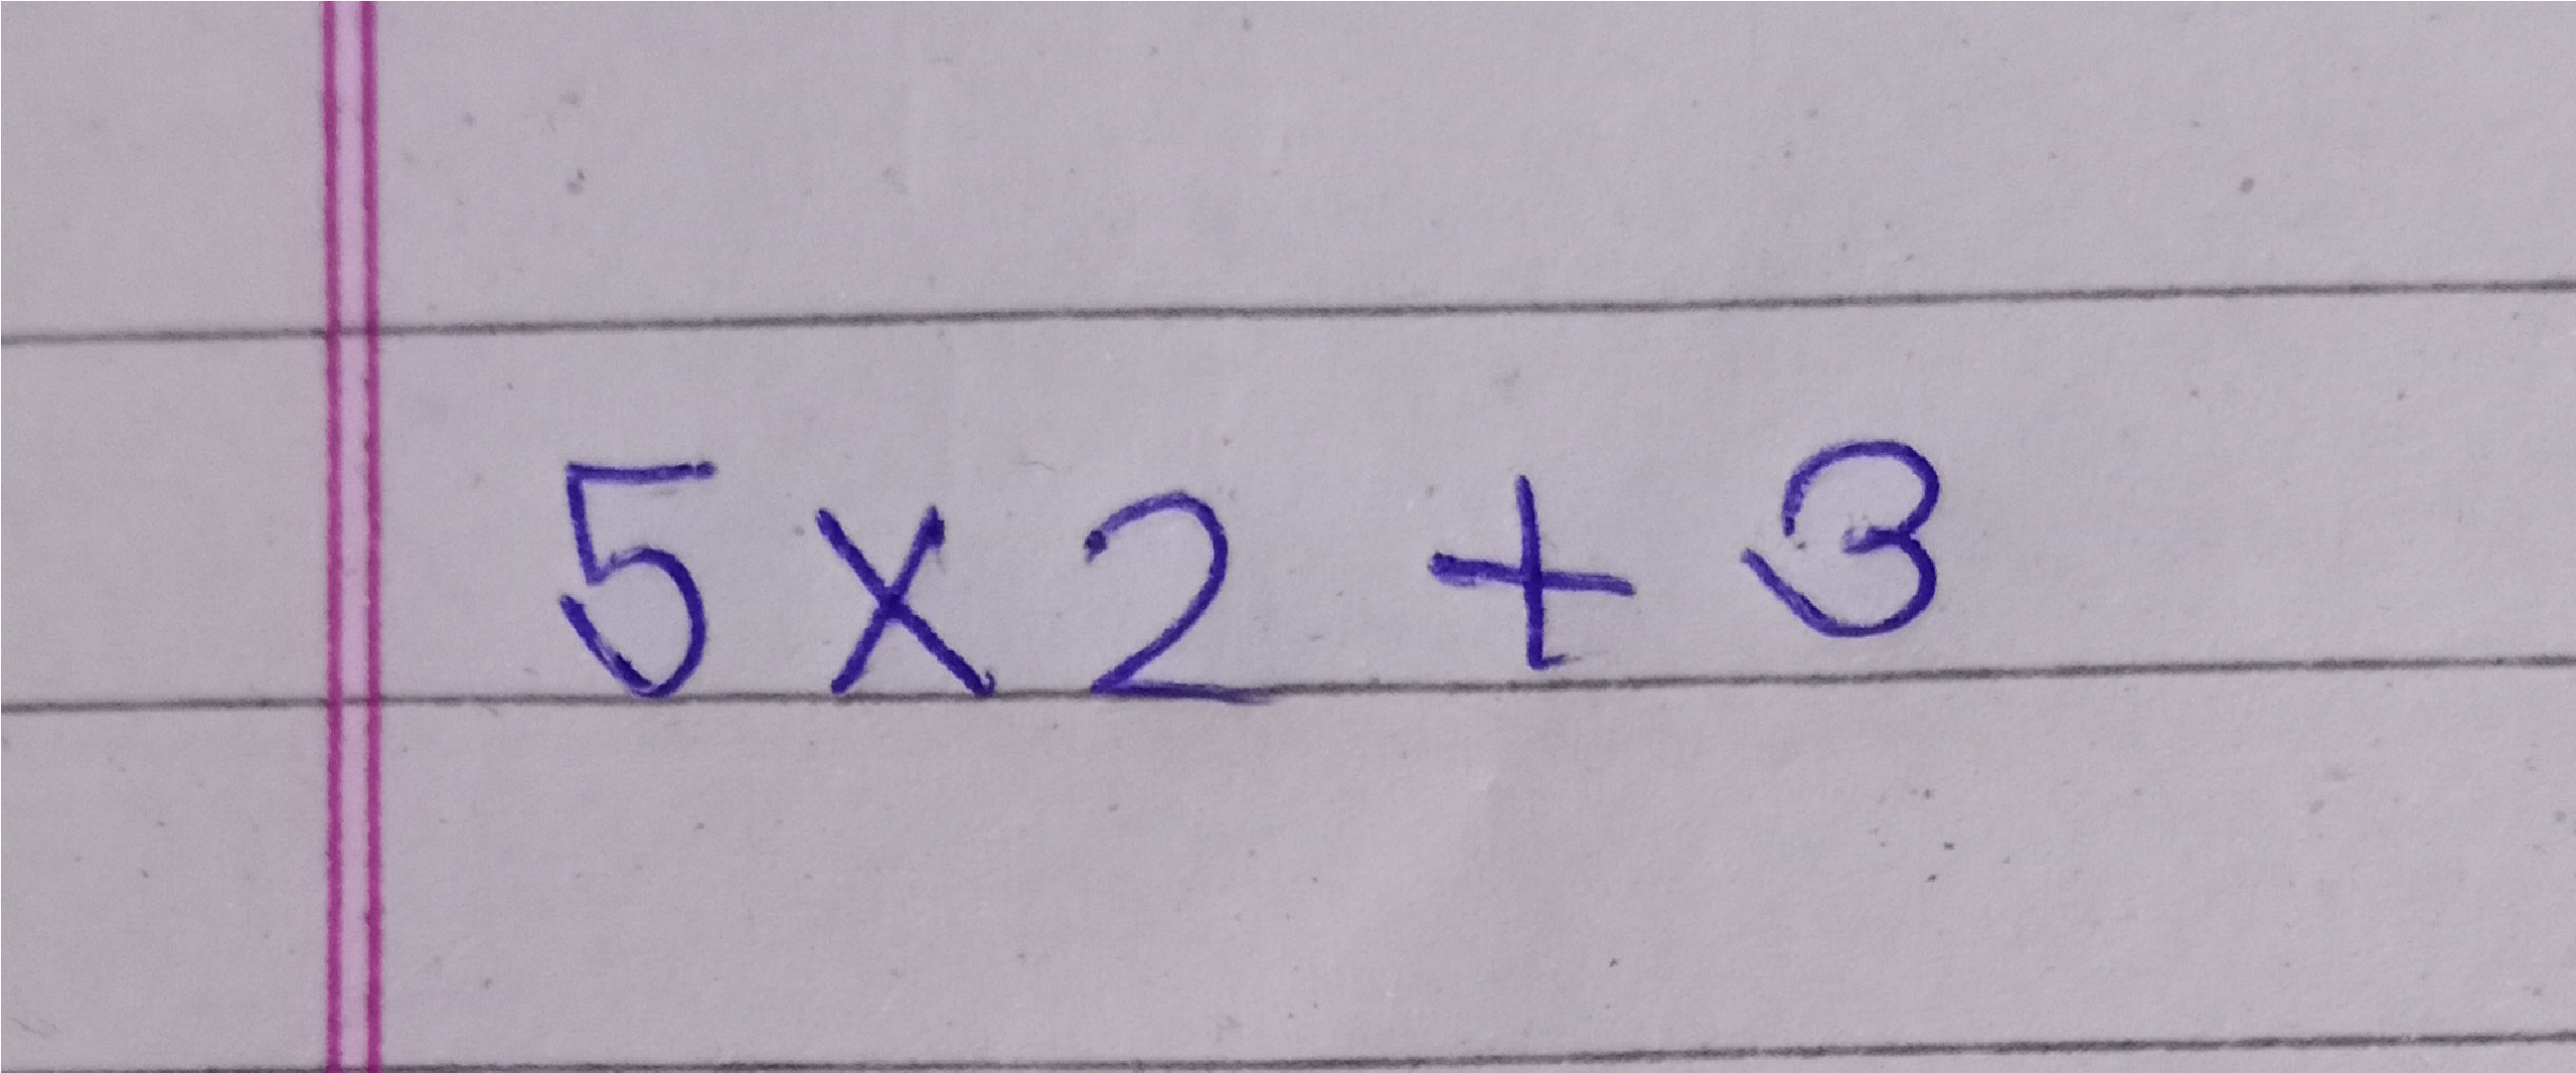 5 × 2 + 3